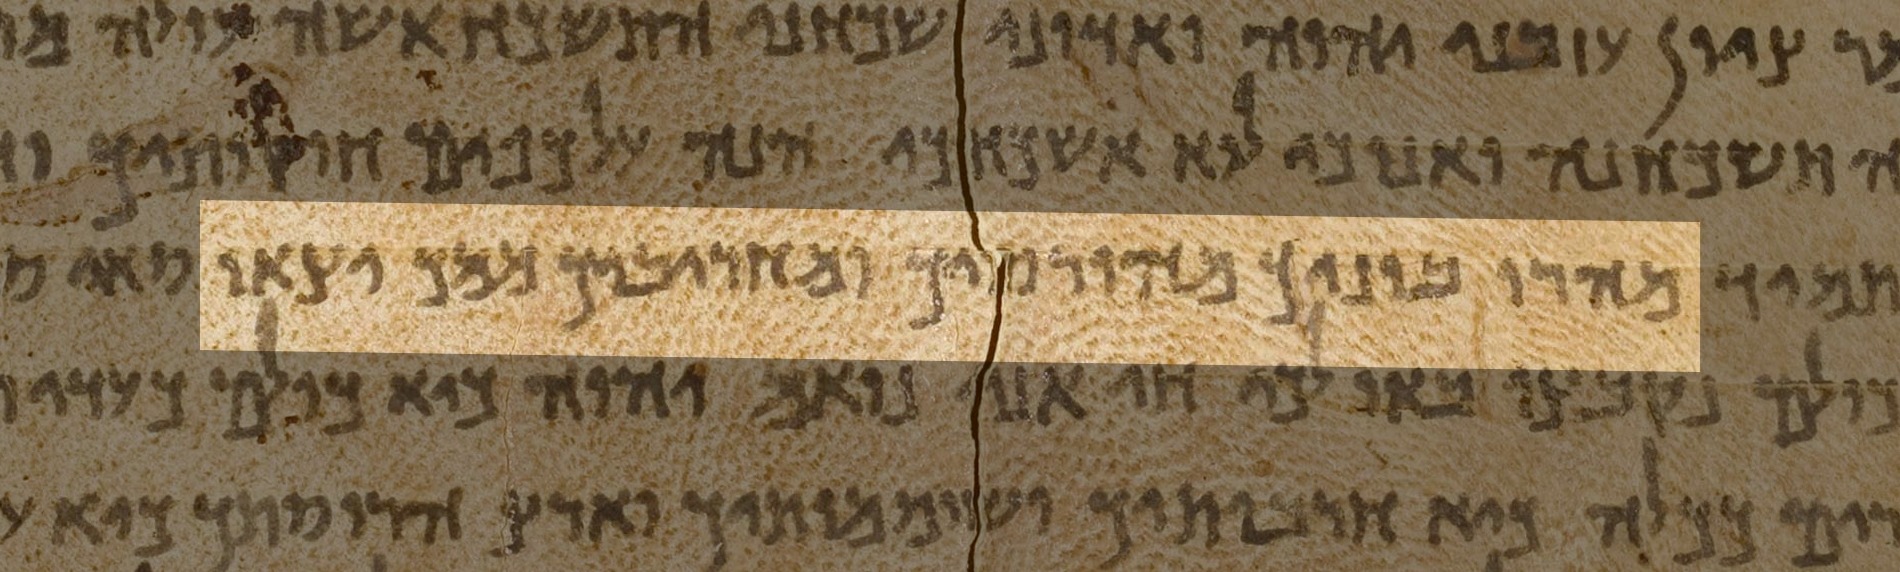 ציון עוזבני יהוה ואדוני שכחני התשכח אשה עולה
תשכחנה ואנוכי לוא אשכחכי הנה על כפים חוקותיך
תמיד מהרו בוניך מהורסיך ומחריביך ממך יצאו שאי
כולם נקבצו באו לכי חי אני נואם יהוה כיא כולם כעדי
ככלה כיא חורבותיך ושוממותיך וארץ הריסתך כיא